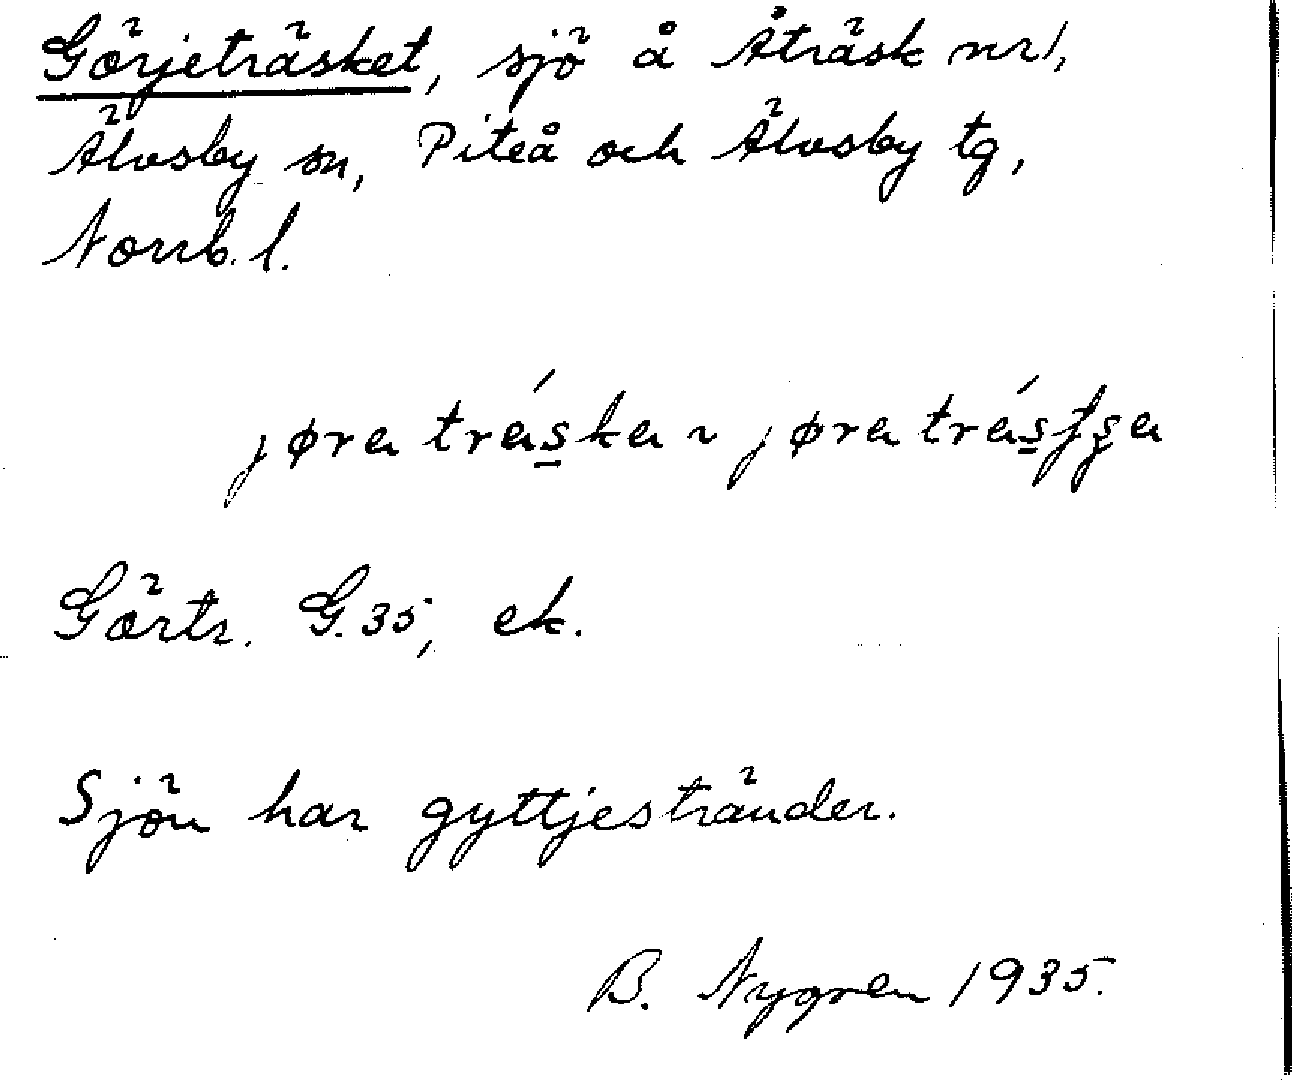 Görjeträsket, sjö å Åträsk nr 1,
Älvsby sn, Piteå och Älvsby tg,
Norrb. l.
jøra tráska ~ jøra trásʃʂa
Görtr. G. 35, ek.
Sjön har gyttjestränder.
B. Nygren 1935.